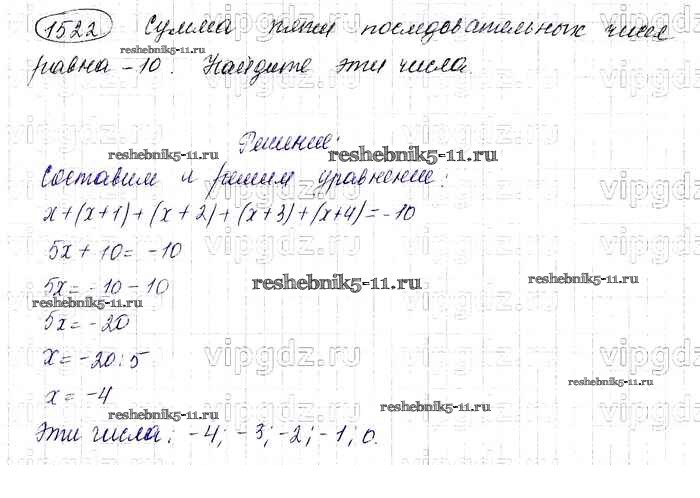 1522 Сумма пяти последовательных чисел
равна -10. Найдите эти числа.
Решение:
reshebnik5-11.ru
reshebnik5-11.ru
reshebnik5-11.ru
Составим и решим уравнение:
vipgdz.ru
vipgdz.ru
x+(x+1)+(x+2)+(x+3)+(x+4)=-10
5x+10=-10
vipgdz.ru
vipgdz.ru
5x=-10-10
reshebnik5-11.ru
reshebnik5-11.ru
reshebnik5-11.ru
5x=-20
x=-20:5
vipgdz.ru
vipgdz.ru
x=-4
reshebnik5-11.ru
reshebnik5-11.ru
reshebnik5-11.ru
Эти числа: -4; -3; -2; -1; 0.
vipgdz.ru
vipgdz.ru